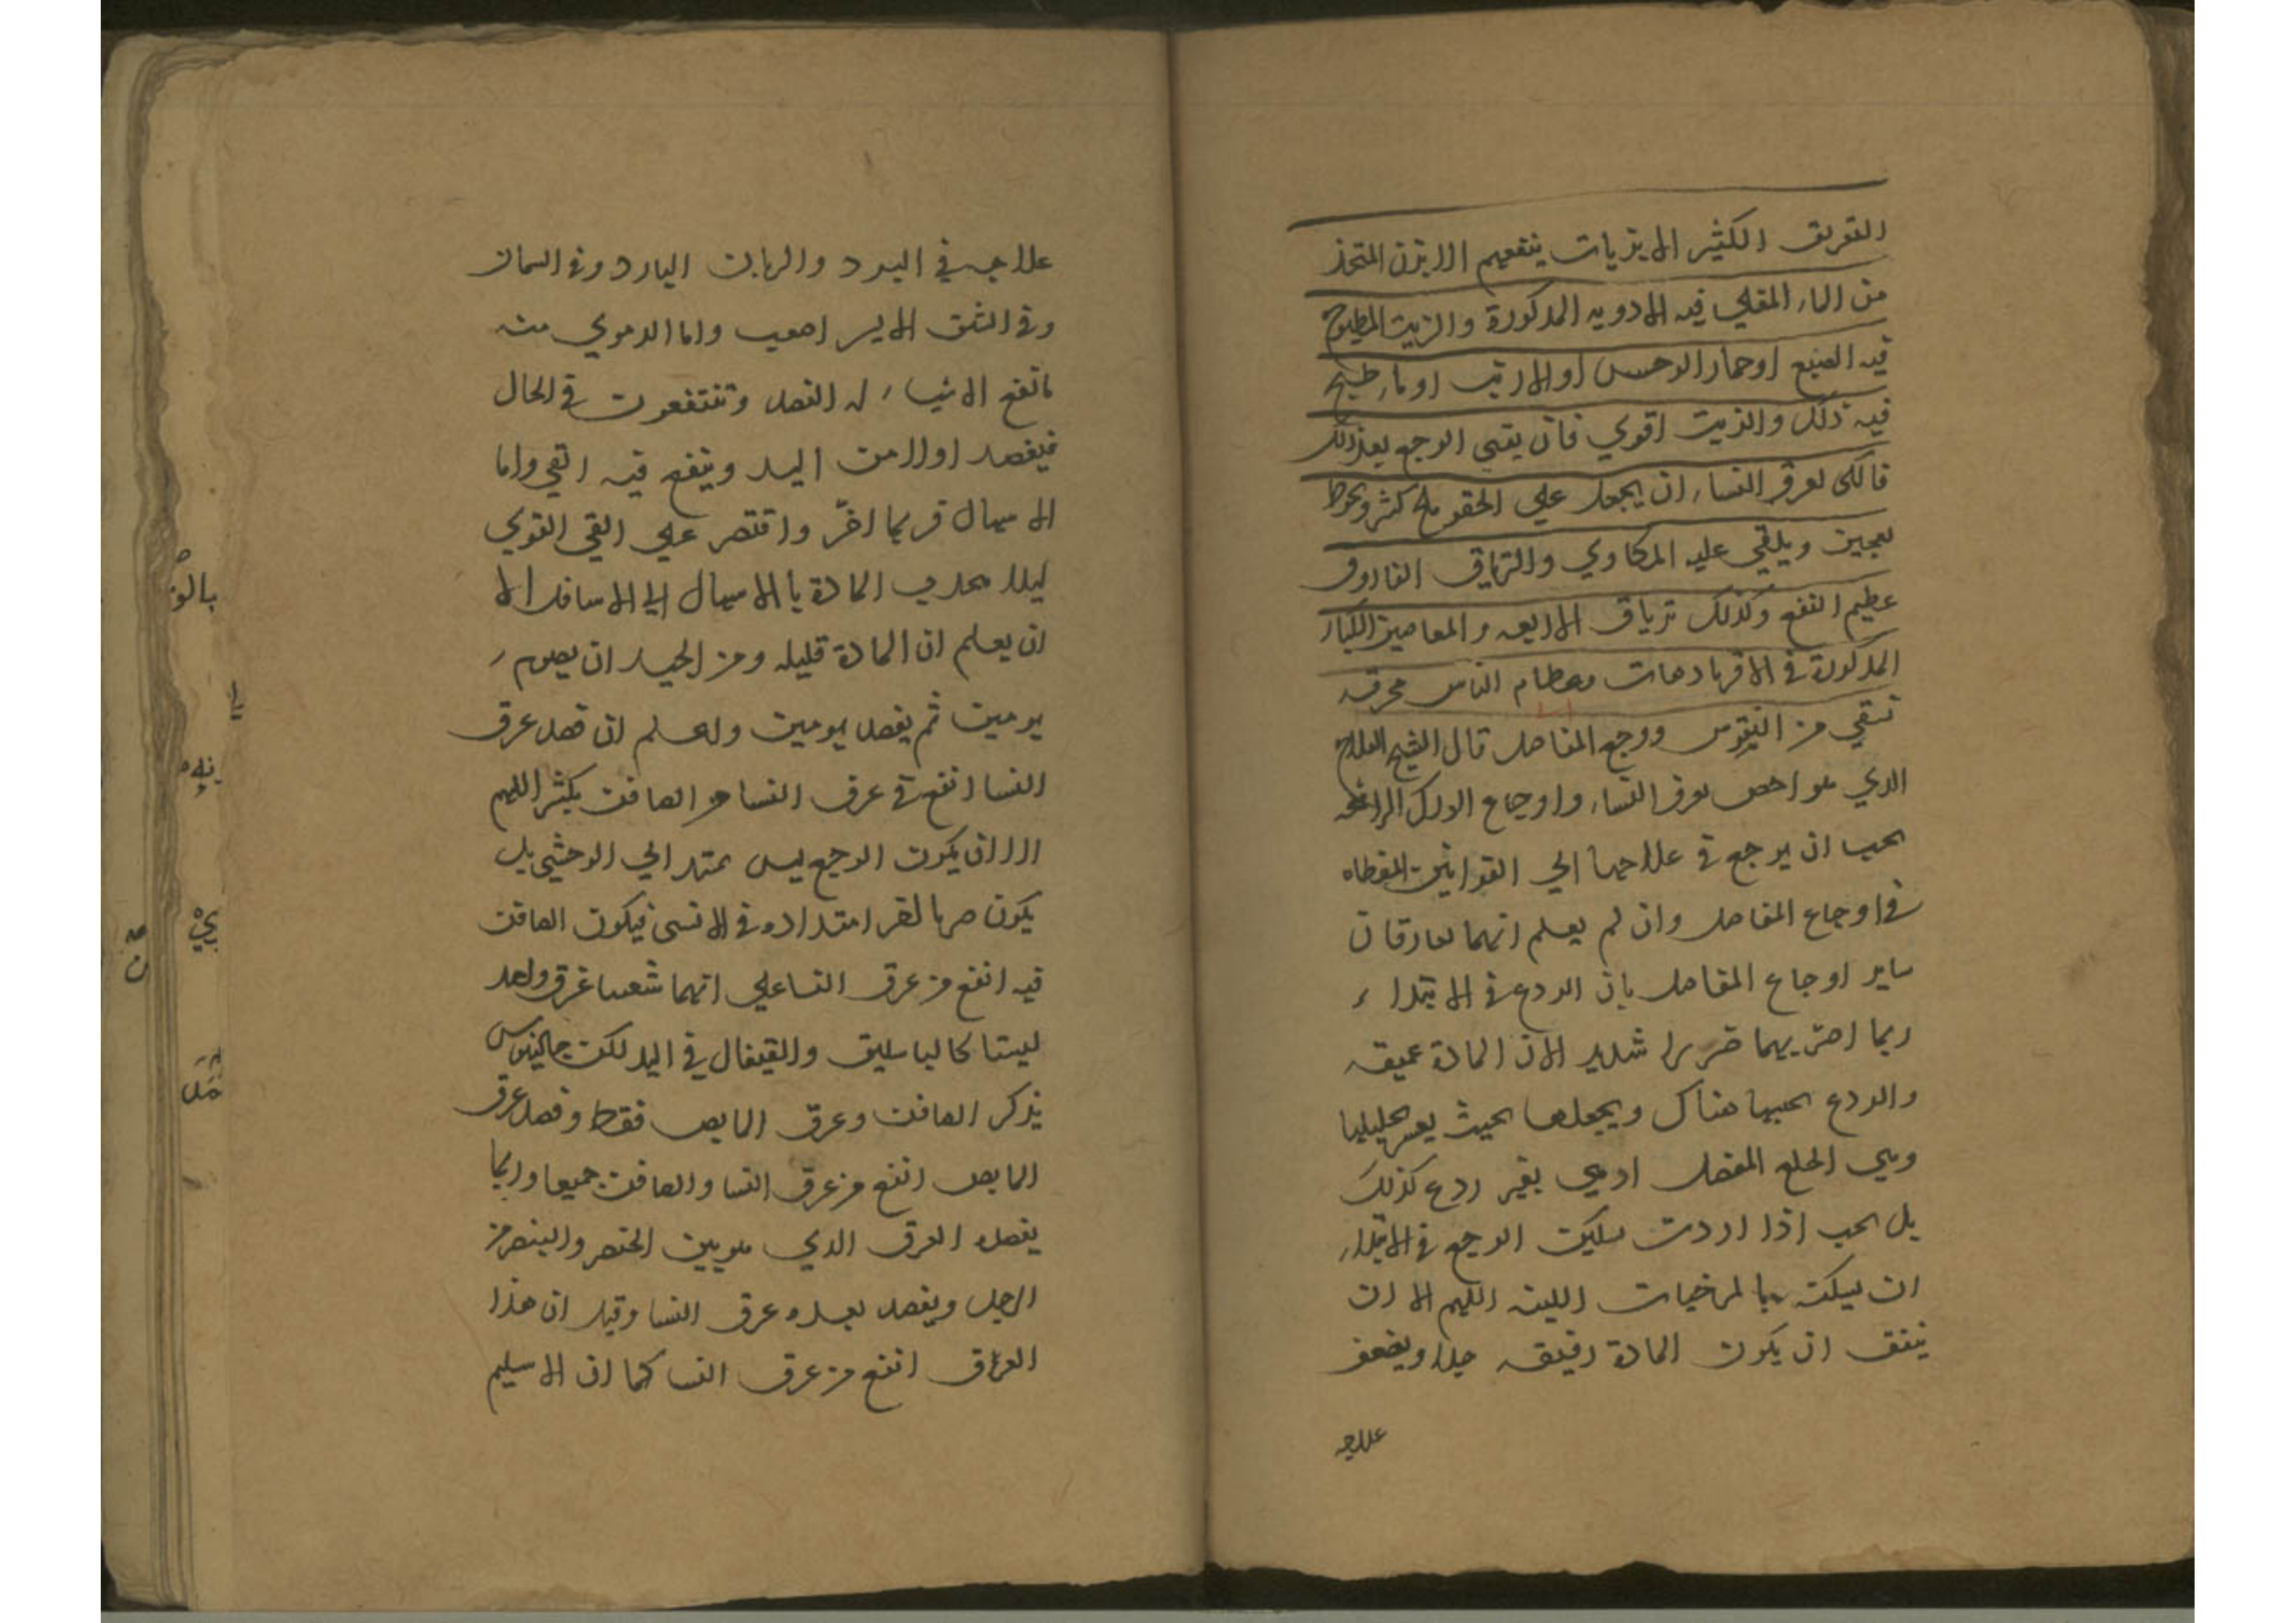 التعريق الكثير الابزيات ينفعهم الابزن المتخذ
من الماء المغلي فيه الادويه المدكورة والزيت المطبوخ
فيه الضبع او حمار الوحسس او الارنب او ماء طبخ
فيه ذلك والزيت اقوي فان بقي الوجع بعد ذلك
فالكي لعرق النساء ان يجعل علي الحقو ملح كثر ويحوط
بعجين ويلقي عليه المكاوي والترياق الفاروق
عظيم النفع وكذلك ترياق الاربعه والمعاجين الكبار
المدكورة في الاقرباذهات وعظام الناس محرقه
تسقي من النقرس ووجع المفاصل قال الشيخ العلاج
الدي هو اخص بعرق النساء واوجاع الورك الراسخه
يجب ان يرجع في علاجهما الي القوانين المعطاه
في اوجاع المفاصل وان لم يعلم انهما يفارقان
ساير اوجاع المفاصل بان الردع في الابتداء
ربما اضر بهما ضررا شديد الان المادة عميقه
والردع يحبسها هناك ويجعلها بحيث يعسر تحليلها
وهي الخلع المفصل او هي بغير ردع كذلك
بل يجب اذا اردت تسكين الوجع في الابتداء
ان تسكنه بالمرخيات اللينه اللهم الا ان
يتفق ان يكون المادة رقيقه جدا ويضعف
علاجه
علاجه في البرد والزمان البارد وفي السمان
وفي الشق الايسر اصعب واما الدموي منه
فانفع الاشياء له الفصد وتنتفعون في الحال
فيفصد اولا من اليد وينفع فيه القي واما
الاسهال فربما اضرّ واقتصر علي القي القوي
ليلا يحدب المادة بالاسهال الي الاسافل الا
ان يعلم ان المادة قليله ومن الجيد ان يصوم
يومين ثم يفصد يومين ولعلم ان فصد عرق
النسا انفع في عرق النسا من الصافن بكثير اللهم
الا ان يكون الوجع ليس يمتد الي الوحشي بل
يكون امتداده في الانسي فيكون الصافن
فيه انفع من عرق النسا علي انهما شعبتا عرق واحد
ليستا كالباسليق والقيفال في اليد لكن جالينوس
يذكر الصافن وعرق المابض فقط وفصد عرق
المابض انفع من عرق النسا والصافن جميعا وربما
يفصد العرق الدي هو بين الخنصر والبنصر من
الرجل ويفصد بعده عرق النسا وقيل ان هذا
العرق انفع من عرق النسا كما ان الاسيلم